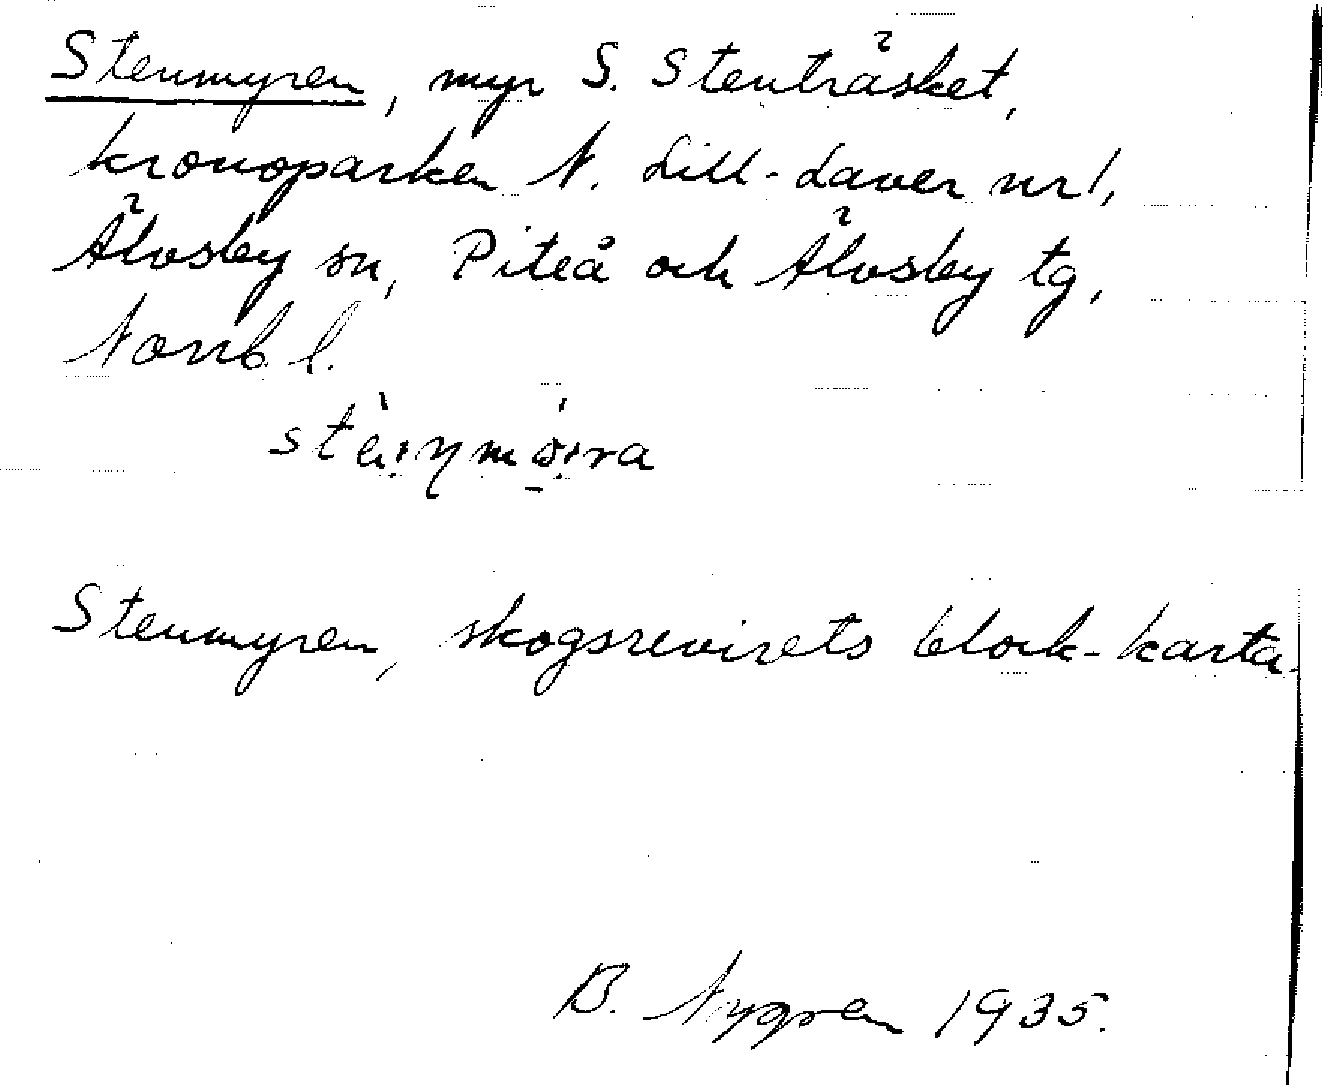 Stenmyren, myr S. Stenträsket,
kronoparken N. Lill-Laver nr 1,
Älvsby sn, Piteå och Älvsby tg,
Norrb. l.
Stenmyren, skogsrevirets block-karta.
B. Nygren 1935.